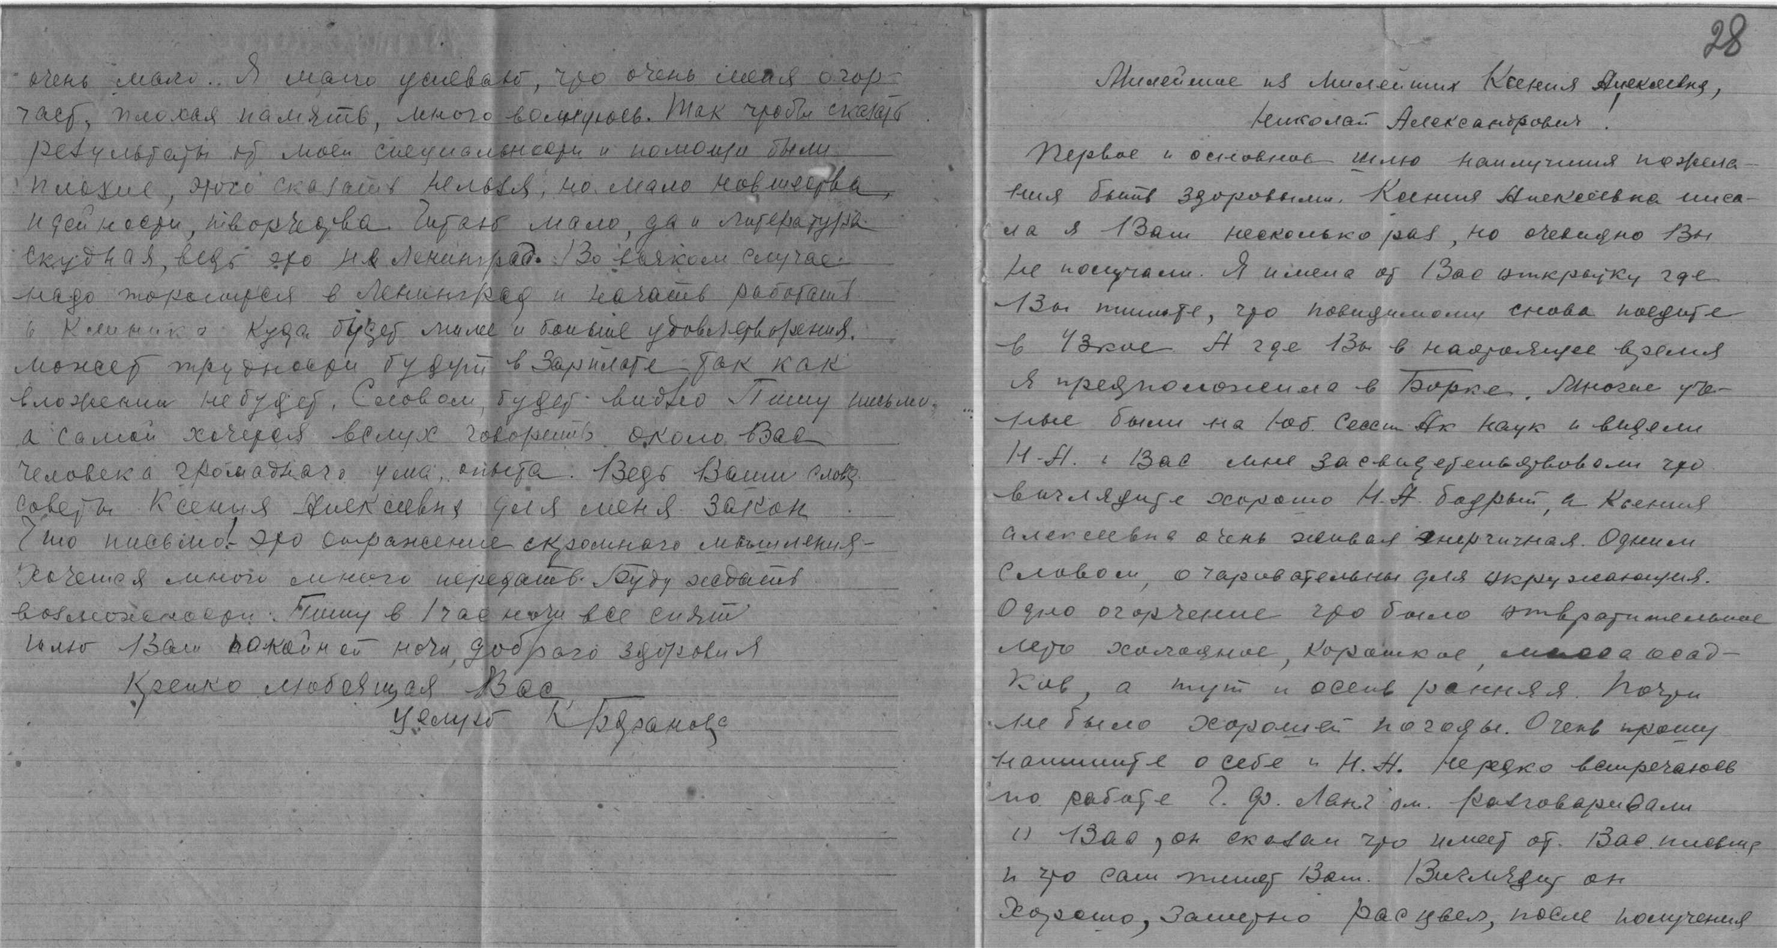 очень мало.. Я мало успеваю, что очень меня огор-
чает, плохая память, много волнуюсь. Так чтобы сказать
результаты от моей специальности и помощи были
плохие, этого сказать нельзя, но мало новшества,
идейности, творчества. Читаю мало, да и литература
скудная, ведь это не Ленинград. Во всяком случае
надо стремиться в Ленинград и начать работать
в Клинике куда будет милее и больше удовлетворения.
может трудности будут в зарплате так как
вложении не будет. Словом, будет видно Пишу письмо,
а самой хочется вслух говорить около Вас
человека громадного ума, опыта. Ведь Ваши слова
советы Ксения Алексеевна для меня закон
Что письмо! это отражение скромного мышления-
Хочется много много передать. Буду ждать
возможности. Пишу в 1 час ночи все спят
шлю Вам покойной ночи, доброго здоровия
Крепко любящая Вас
Целую К
28
Милейшие из милейших Ксения Алексеевна,
Николай Александрович!
Первое и основное шлю наилучшия пожела-
ния быть здоровыми. Ксения Алексеевна писа-
ла я Вам несколько раз, но очевидно Вы
не получали. Я имела от Вас открытку где
Вы пишите, что повидимому снова поедите
в Узкое А где Вы в настоящее время
Я предположила в Борке. Многие уче-
ные были на Юб. Сессии Ак Наук и видели
Н.А. и Вас мне засвидетельствовали что
выглядите хорошо Н.А. бодрый, а Ксения
Алексеевна очень живая энергичная. Одним
словом, очаровательны для окружающия.
Одно огорчение что было отвратительное
лето холодное, короткое, масса осад-
ков, а тут и осень ранняя. Почти
не было хорошей погоды. Очень прошу
напишите о себе и Н.А. Нередко встречаюсь
по работе Г. Ф. Ланг'ом. Разговаривали
о Вас, он сказал что имеет от Вас письма
и что сам пишет Вам. Выглядит он
Хорошо, заметно расцвел, после получения